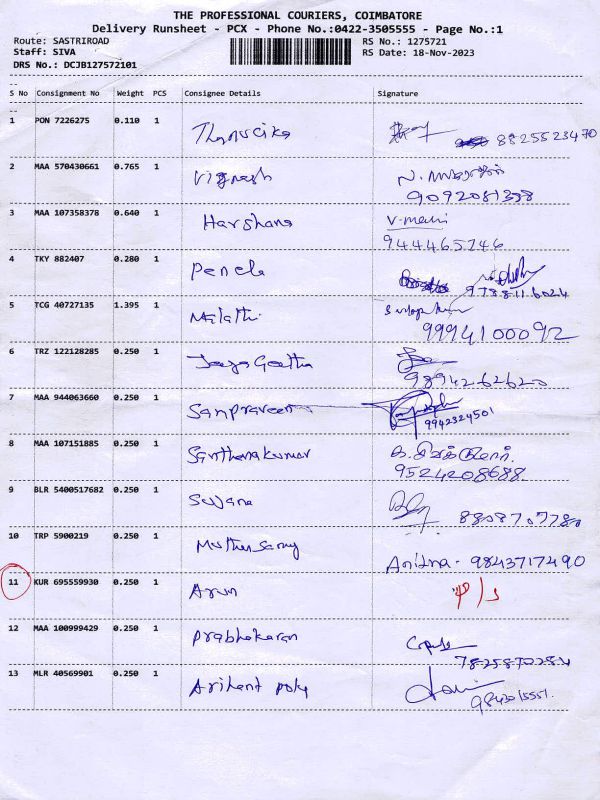 THE PROFESSIONAL COURIERS, COIMBATORE
Delivery Runsheet - PCX - Phone No.:0422-3505555 - Page No.:1
Route: SASTRIROAD RS No.: 1275721
Staff: SIVA RS Date: 18-Nov-2023
DRS No.: DCJB127572101
S No Consignment No Weight PCS Consignee Details Signature
1 PON 7226275 0.110 1 Thanucika 8825523470
2 MAA 570430661 0.765 1 Vignesh
9092081338
3 MAA 107358378 0.640 1 Harshana
944465746
4 TKY 882407 0.280 1 Penela
9788116024
5 TCG 40727135 1.395 1 Malathi
9994100092
6 TRZ 122128285 0.250 1 Jeeyageetha
9894262620
7 MAA 944063660 0.250 1 Sanpraveen
9942324501
8 MAA 107151885 0.250 1 Santhanakumar
9524208688
9 BLR 5400517682 0.250 1 Sujana 8808707780
10 TRP 5900219 0.250 1 Muthusamy Anitha - 9843717490
11 KUR 695559930 0.250 1 Arun
12 MAA 100999429 0.250 1 Prabhakaran
7825870284
13 MLR 40569901 0.250 1 Arihant poly